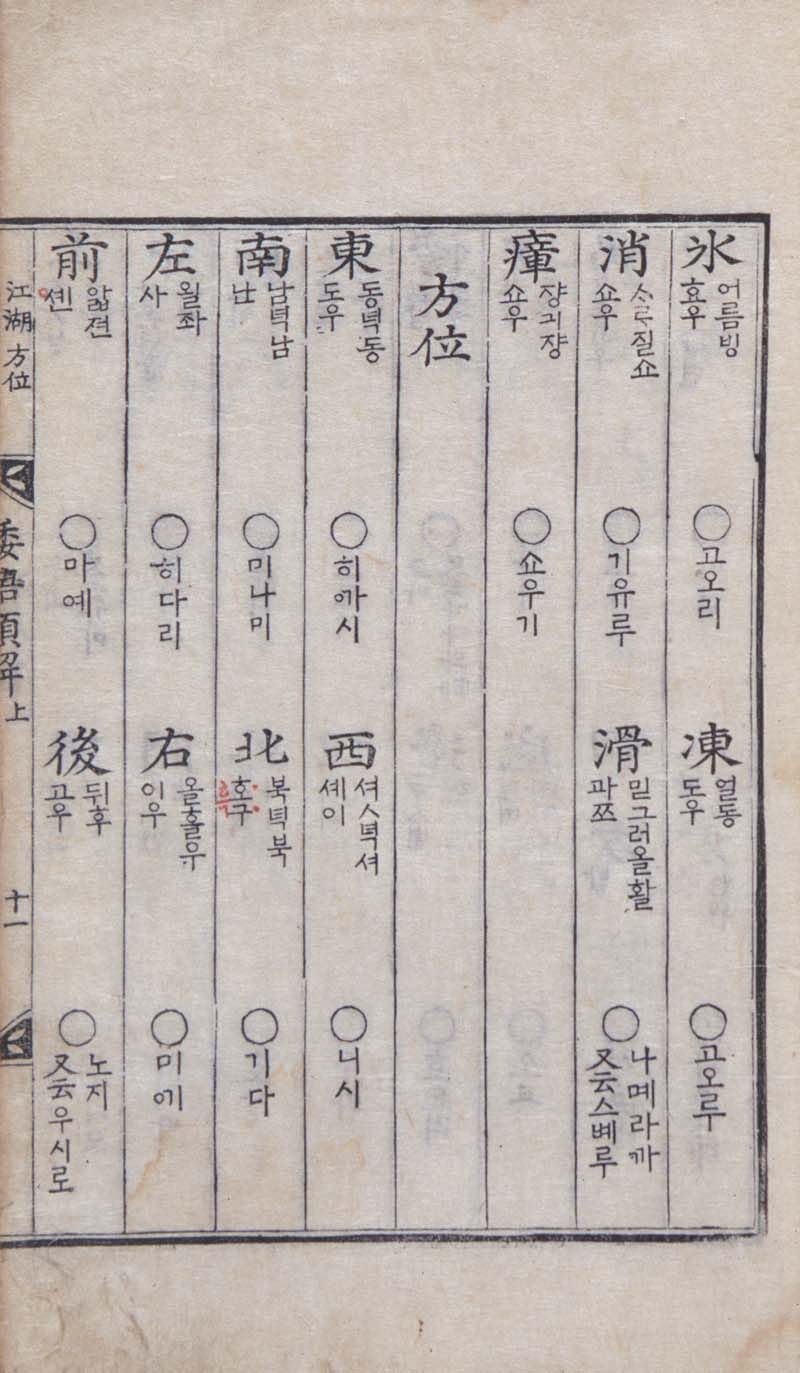 氷 어름빙 효우 ○고오리
凍 열동 도우 ○고오루
消 스루질쇼 쇼우 ○기유루
滑 믿그러올활 과쯔 ○나메라까 又云스볘루
瘴 쟝긔쟝 쇼우 ○쇼우기
方位
東 동녁동 도우 ○히ᅁ가시
西 셔ㅅ녁셔 셰이 ○니시
南 남녁남 난 ○미나미
北 북녁북 호구 ○기다
左 욀좌 사 ○히다리
右 올흘우 이우 ○미ᅁ기
前 앏젼 셴 ○마예
後 뒤후 고우 ○노지 又云우시로
江湖 方位
倭語類解 上
十一